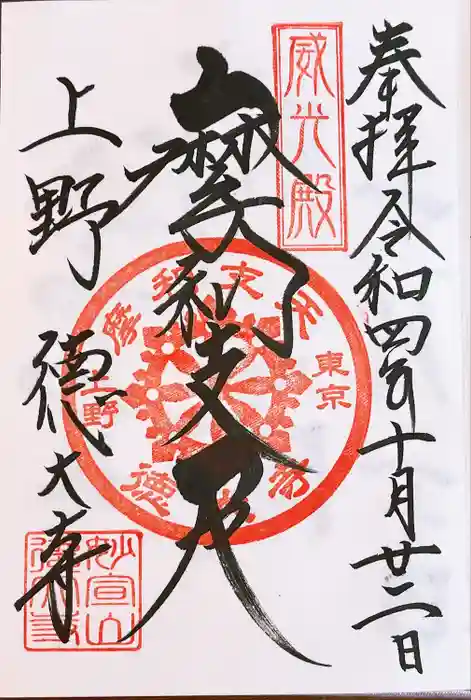 奉拝 令和四年十月廿二日
威光殿
摩利支天
摩利支天
東京
上野
徳大寺
上野 徳大寺
妙宣山
徳大寺